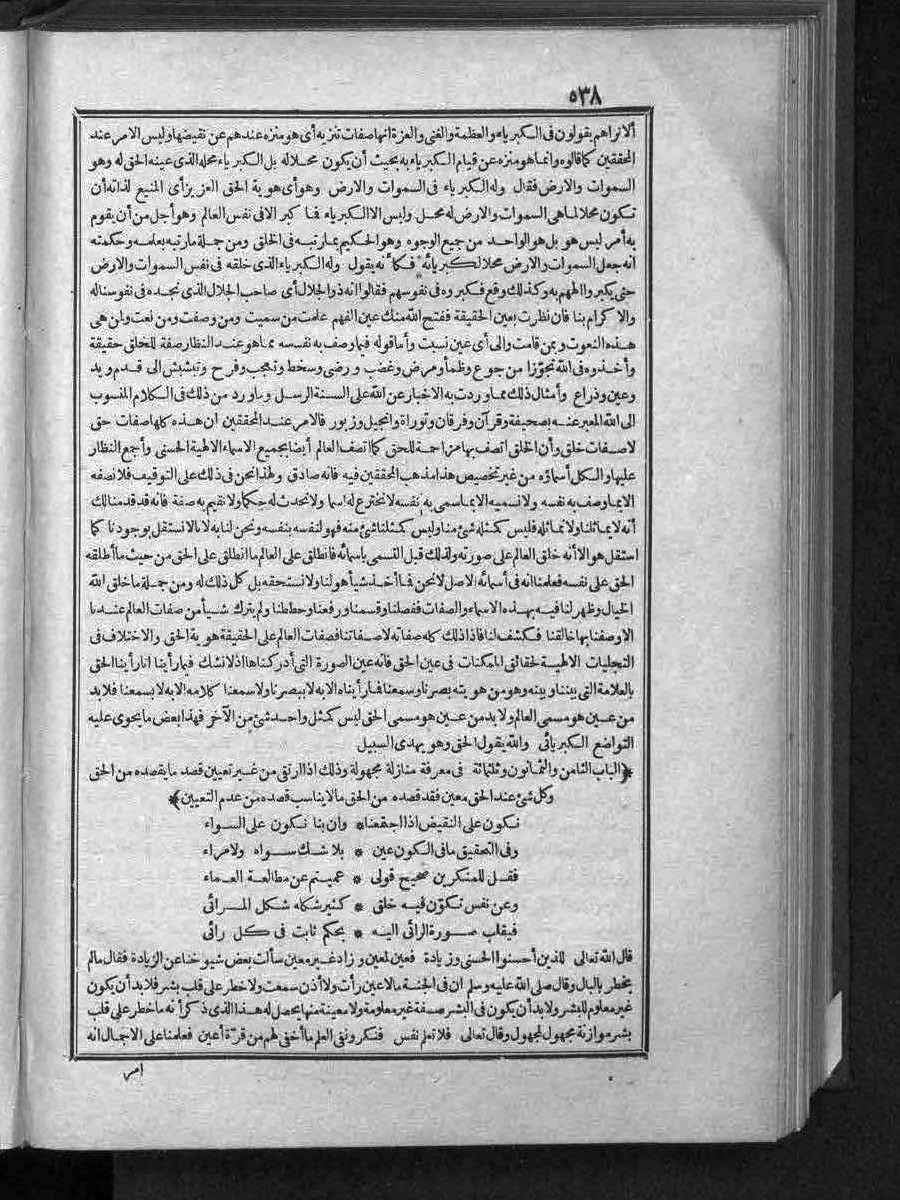 ٥٣٨
ألا تراهم يقولون فى الكبرياء والعظمة والغنى والعزة انها صفات تنزيه أى هو منزه عندهم عن نقيضها وليس الامر عند
المحققين كما قالوه وانما هو منزه عن قيام الكبرياء به بحيث أن يكون محلا له بل الكبرياء محله الذى عينه الحق له وهو
السموات والارض فقال وله الكبرياء فى السموات والارض وهو أى هوية الحق العزيز أى المنيع لذاته أن
تكون محلا لما هى السموات والارض له محل وليس الا الكبرياء فما كبر الا فى نفس العالم وهو أجل من أن يقوم
به أمر ليس هو بل هو الواحد من جميع الوجوه وهو الحكيم بما رتبه فى الخلق ومن جملة ما رتبه بعلمه وحكمته
انه جعل السموات والارض محلا لكبريائه فكأنه يقول وله الكبرياء الذى خلقه فى نفس السموات والارض
حتى يكبروا الههم به وكذلك وقع فكبروه فى نفوسهم فقالوا انه ذو الجلال أى صاحب الجلال الذى نجده فى نفوسنا له
والاكرام بنا فان نظرت بعين الحقيقة ففتح الله منك عين الفهم علمت من سميت ومن وصفت ومن نعت ولمن هى
هذه النعوت وبمن قامت والى أى عين نسبت وأما قوله فيما وصف به نفسه مما هو عند النظار صفة للخلق حقيقة
وأخذوه فى الله تجوّزا من جوع وظمأ ومرض وغضب ورضى وسخط وتعجب وفرح وتبشبش الى قدم ويد
وعين وذراع وأمثال ذلك مما وردت به الاخبار عن الله على ألسنة الرسل وما ورد من ذلك فى الكلام المنسوب
الى الله المعبر عنه بصحيفة وقرآن وفرقان وتوراة وانجيل وزبور فالامر عند المحققين أن هذه كلها صفات حق
لا صفات خلق وأن الخلق اتصف بها مزاحمة للحق كما اتصف العالم أيضا بجميع الاسماء الالهية الحسنى وأجمع النظار
عليها والكل أسماؤه من غير تخصيص هذا مذهب المحققين فيه فانه صادق ولهذا نحن فى ذلك على التوقيف فلا نصفه
الا بما وصف به نفسه ولا نسميه الا بما سمى به نفسه لا نخترع له اسما ولا نحدث له حكما ولا نقيم به صفة فانه قد قدمنا لك
أنه لا يماثلنا ولا نماثله فليس كمثله شئ منا وليس كمثلنا شئ منه فهو لنفسه بنفسه ونحن لنا به لا بالا نستقل بوجودنا كما
استقل هو الا أنه خلق العالم على صورته ولذلك قبل التسمى باسمائه فانطلق على العالم ما انطلق على الحق من حيث ما أطلقه
الحق على نفسه فعلمنا انه فى أسمائه الاصل لا نحن فما أخذ شيأ هو لنا ولا نستحقه بل كل ذلك له ومن جملة ما خلق الله
الخيال وظهر لنا فيه بهذه الاسماء والصفات ففصلنا وقسمنا ورفعنا وحططنا ولم يترك شيأ من صفات العالم عندنا
الا وصفنا بها خالقنا فكشف لنا فاذا ذلك كله صفاته لا صفاتنا فصفات العالم على الحقيقة هوية الحق والاختلاف فى
التجليات الالهية لحقائق الممكنات فى عين الحق فانه عين الصورة التى أدركناها اذ لا نشك فيما رأينا انا رأينا الحق
بالعلامة التى بيننا وبينه وهو من هويته بصرنا وسمعنا فما رأيناه الا به لا ببصرنا ولا سمعنا كلامه الا به لا بسمعنا فلا بد
من عين هو مسمى العالم ولا بد من عين هو مسمى الحق ليس كمثل واحد شئ من الآخر فهذا بعض ما يحوى عليه
التواضع الكبريائى والله يقول الحق وهو يهدى السبيل
﴿الباب الثامن والثمانون وثلثمائة فى معرفة منازلة مجهولة وذلك اذا ارتقى من غير تعيين قصد ما يقصده من الحق
وكل شئ عند الحق معين فقد قصده من الحق ما لا يناسب قصده من عدم التعيين﴾
نكون على النقيض اذا اجتمعنا * وان بنا نكون على السواء
وفى التحقيق ما فى الكون عين * بلا شك سواه ولا مراء
فقل للمنكرين صحيح قولى * عميتم عن مطالعة العماء
وعن نفس تكوّن فيه خلق * كثير شكله شكل المرائى
فيقلب صورة الرائى اليه * بحكم ثابت فى كل رائى
قال الله تعالى للذين أحسنوا الحسنى وزيادة فعين لمعين وزاد غير معين سألت بعض شيوخنا عن الزيادة فقال ما لم
يخطر بالبال وقال صلى الله عليه وسلم ان فى الجنة ما لا عين رأت ولا أذن سمعت ولا خطر على قلب بشر فلا بد أن يكون
غير معلوم للبشر ولا بد أن يكون فى البشر صفة غير معلومة ولا معينة منها يحصل له هذا الذى ذكر أنه ما خطر على قلب
بشر موازنة مجهول لمجهول وقال تعالى فلا تعلم نفس فنكر ونفى العلم ما أخفى لهم من قرّة أعين فعلمنا على الاجمال انه
امر